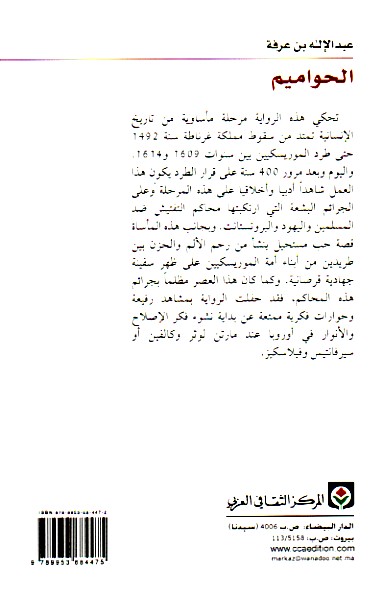 عبدالإله بن عرفة
الحواميم
تحكي هذه الرواية مرحلة مأساوية من تاريخ
الإنسانية تمتد من سقوط مملكة غرناطة سنة 1492
حتى طرد الموريسكيين بين سنوات 1609 و1614.
واليوم وبعد مرور 400 سنة على قرار الطرد يكون هذا
العمل شاهداً أدبيا وأخلاقيا على هذه المرحلة وعلى
الجرائم البشعة التي ارتكبتها محاكم التفتيش ضد
المسلمين واليهود والبروتستانت. وبجانب هذه المأساة
قصة حب مستحيل ينشأ من رحم الألم والحزن بين
طريدين من أبناء أمة الموريسكيين على ظهر سفينة
جهادية قرصانية. وكما كان هذا العصر مظلماً بجرائم
هذه المحاكم، فقد حفلت الرواية بمشاهد رفيعة
وحوارات فكرية ممتعة عن بداية نشوء فكر الإصلاح
والأنوار في أوروبا عند مارتن لوثر وكالفين أو
سيرفانتيس وفيلاسكيز.
المركز الثقافي العربي
الدار البيضاء: ص.ب 4006 (سيدنا)
بيروت: ص.ب: 113/5158
www.ccaedition.com
markaz@wanadoo.net.ma
ISBN 978-9953-68-447-5
9 789953 684475